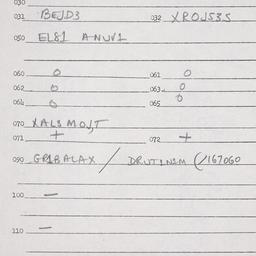 030
031 BEJD3 032 XROJS3S
050 EL81 ANUV1
060 0 061 0
062 0 063 0
064 0 065 0
070 XALSMOJT
071 + 072 +
090 GR18ALAX / DRUT1N1M (/167060
100 —
110 —